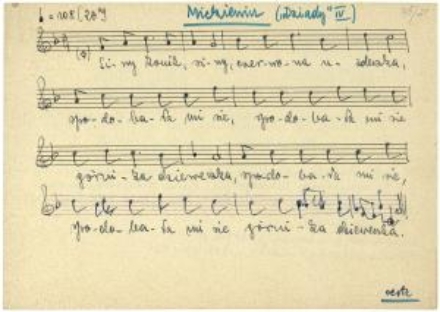 ♩ = 108 (20")
Mickiewicz („Dziady" IV)
Si - wy konik, si - wy, czer - wo - na u - zdeczka,
spo - do - ba - ła mi się, spo - do - ba - ła mi się
górni - cza dzieweczka, spodo - ba - ła mi się,
spo - do - ba - ła mi się górni - cza dzieweczka.